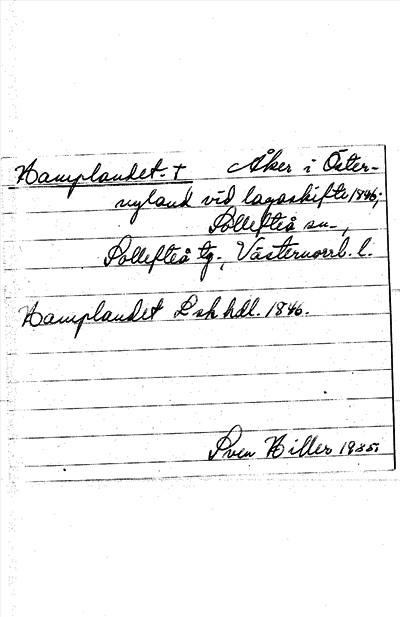 Hamplandet. † Åker i Öster-
nyland vid lagaskifte 1846;
Sollefteå sn.,
Sollefteå tg., Västernorrl. l.
Hamplandet Lsk hdl. 1846.
Sven Hiller 1985.